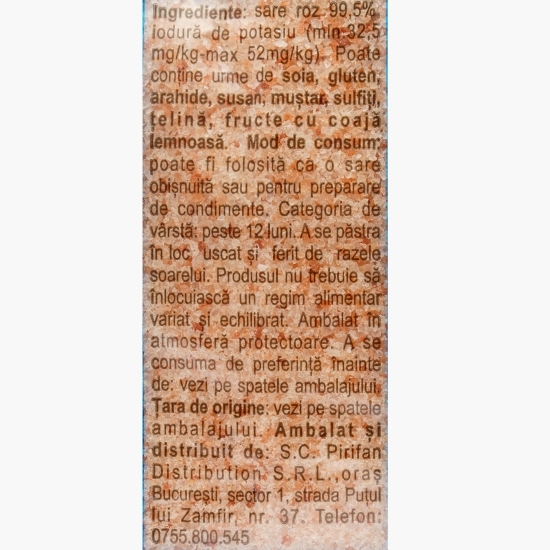 Ingrediente: sare roz 99,5%,
iodură de potasiu (min.32,5
mg/kg-max 52mg/kg). Poate
conține urme de soia, gluten,
arahide, susan, muștar, sulfiți,
țelină, fructe cu coajă
lemnoasă. Mod de consum:
poate fi folosită ca o sare
obișnuită sau pentru preparare
de condimente. Categoria de
vârstă: peste 12 luni. A se păstra
în loc uscat și ferit de razele
soarelui. Produsul nu trebuie să
înlocuiască un regim alimentar
variat și echilibrat. Ambalat în
atmosferă protectoare. A se
consuma de preferință înainte
de: vezi pe spatele ambalajului.
Țara de origine: vezi pe spatele
ambalajului. Ambalat și
distribuit de: S.C. Pirifan
Distribution S.R.L.,oraș
București, sector 1, strada Puțul
lui Zamfir, nr. 37. Telefon:
0755.800.545